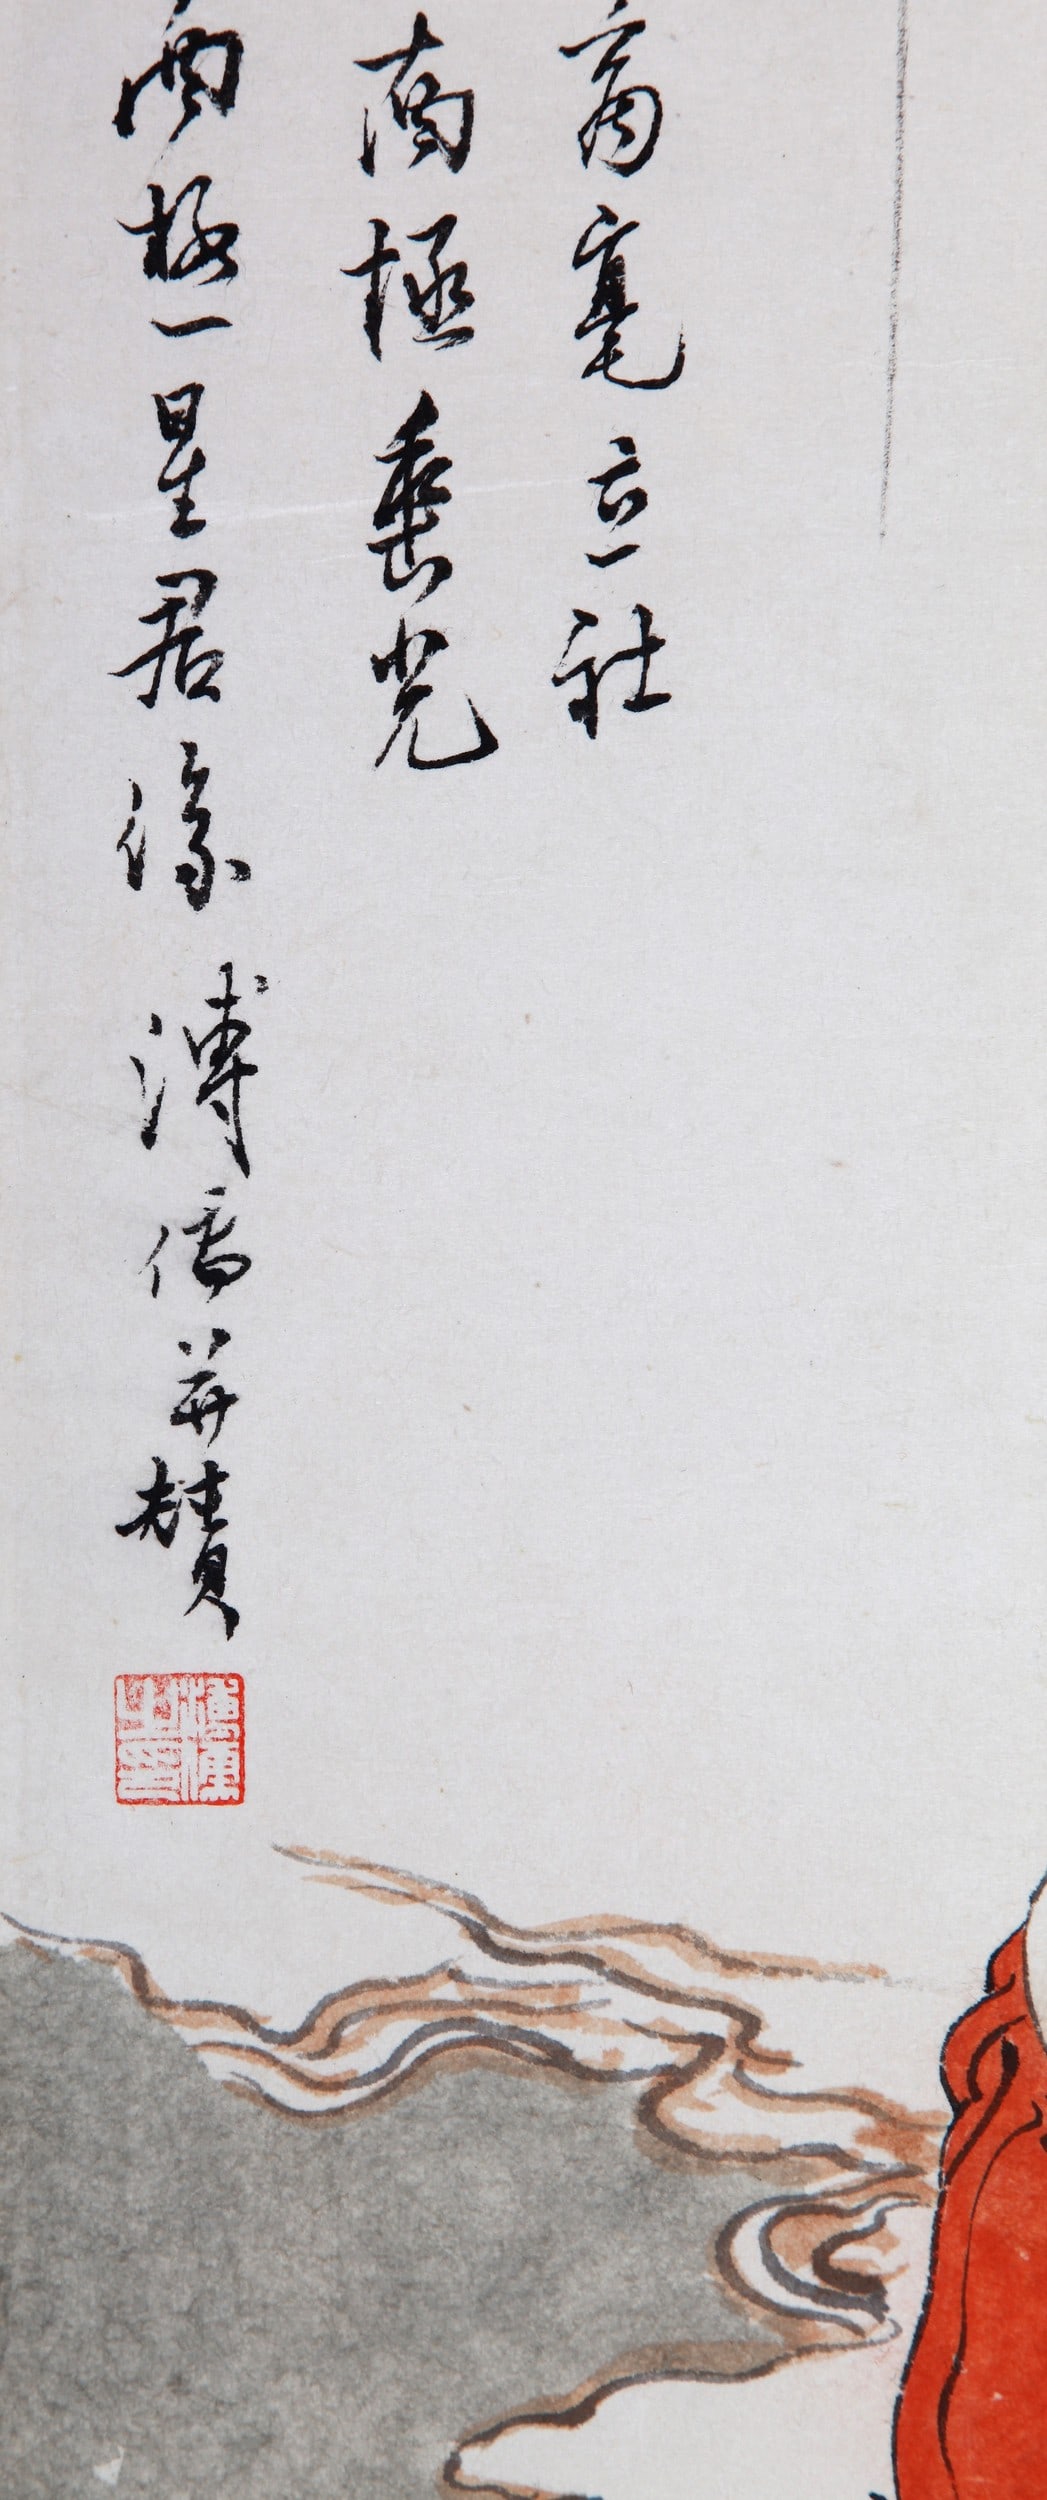 商亳立社
南極垂光
南極星君像 溥儒并贊
溥儒之印